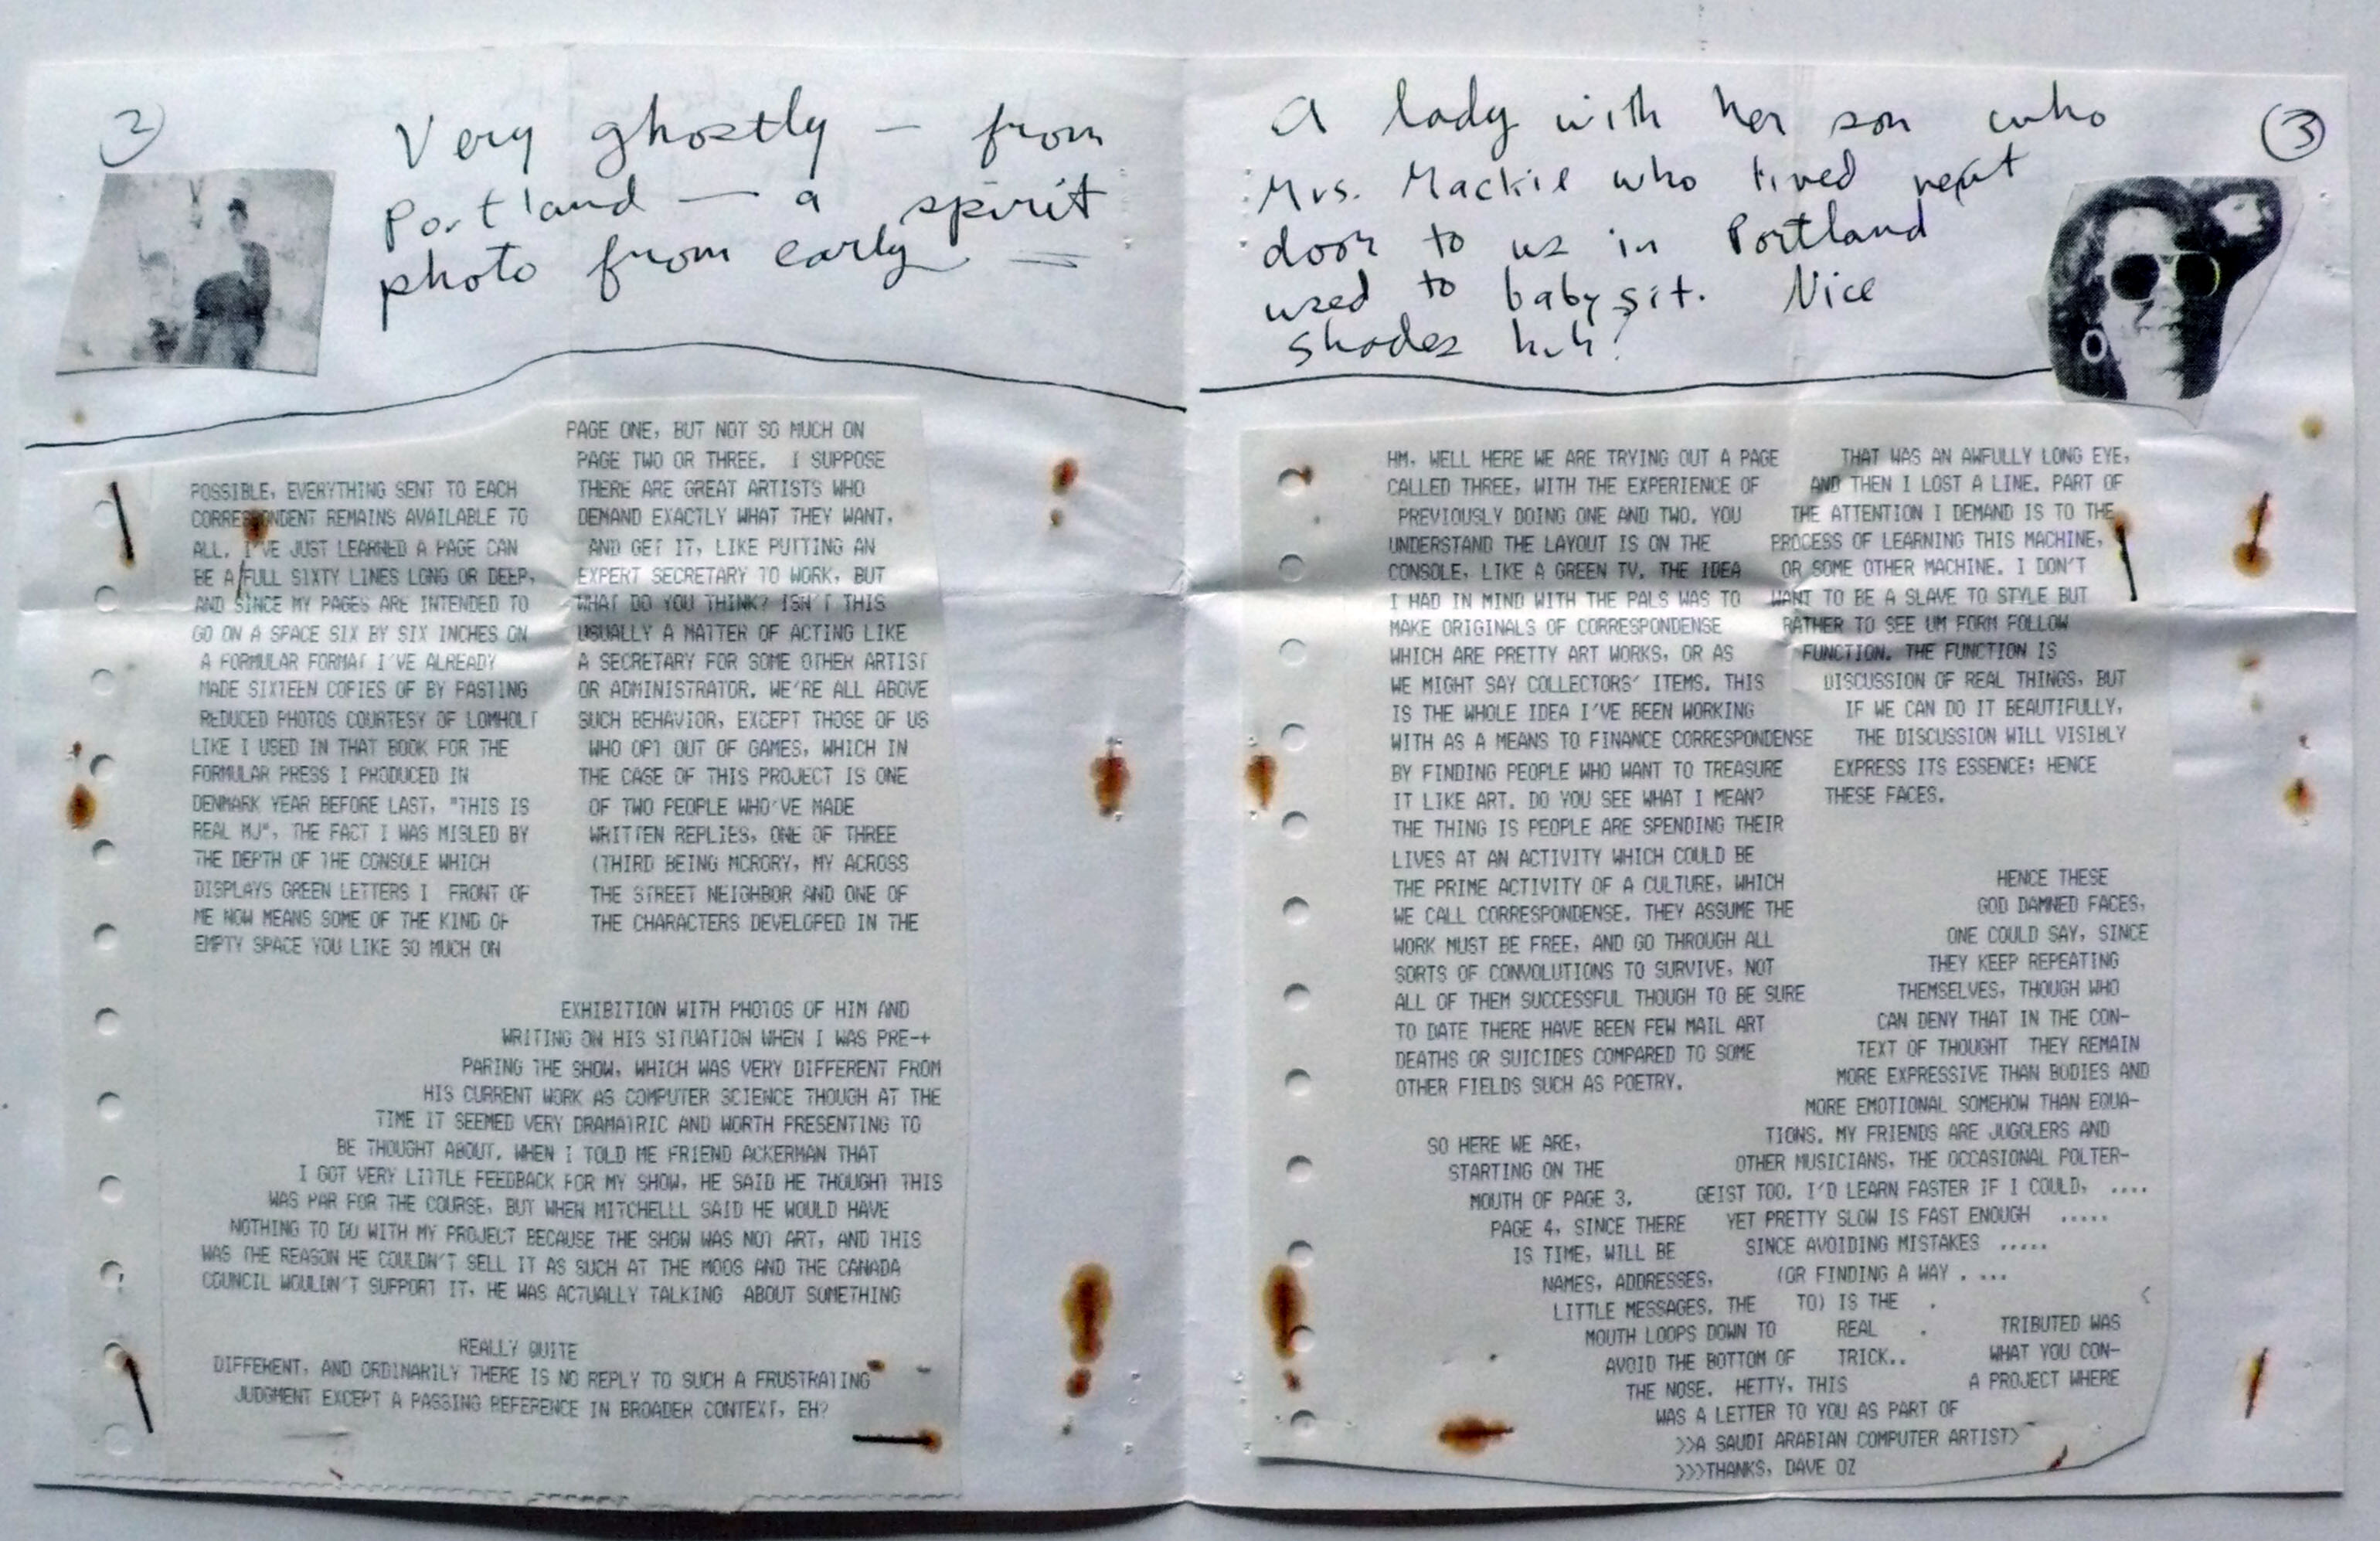 2
Very ghostly — from
Portland — a spirit
photo from early
POSSIBLE, EVERYTHING SENT TO EACH
CORRESPONDENT REMAINS AVAILABLE TO
ALL. I'VE JUST LEARNED A PAGE CAN
BE A FULL SIXTY LINES LONG OR DEEP,
AND SINCE MY PAGES ARE INTENDED TO
GO ON A SPACE SIX BY SIX INCHES ON
A FORMULAR FORMAT I'VE ALREADY
MADE SIXTEEN COPIES OF BY PASTING
REDUCED PHOTOS COURTESY OF LOMHOLT
LIKE I USED IN THAT BOOK FOR THE
FORMULAR PRESS I PRODUCED IN
DENMARK YEAR BEFORE LAST, "THIS IS
REAL MJ", THE FACT I WAS MISLED BY
THE DEPTH OF THE CONSOLE WHICH
DISPLAYS GREEN LETTERS I FRONT OF
ME NOW MEANS SOME OF THE KIND OF
EMPTY SPACE YOU LIKE SO MUCH ON
PAGE ONE, BUT NOT SO MUCH ON
PAGE TWO OR THREE. I SUPPOSE
THERE ARE GREAT ARTISTS WHO
DEMAND EXACTLY WHAT THEY WANT,
AND GET IT, LIKE PUTTING AN
EXPERT SECRETARY TO WORK, BUT
WHAT DO YOU THINK? ISN'T THIS
USUALLY A MATTER OF ACTING LIKE
A SECRETARY FOR SOME OTHER ARTIST
OR ADMINISTRATOR. WE'RE ALL ABOVE
SUCH BEHAVIOR, EXCEPT THOSE OF US
WHO OPT OUT OF GAMES, WHICH IN
THE CASE OF THIS PROJECT IS ONE
OF TWO PEOPLE WHO'VE MADE
WRITTEN REPLIES, ONE OF THREE
(THIRD BEING MCRORY, MY ACROSS
THE STREET NEIGHBOR AND ONE OF
THE CHARACTERS DEVELOPED IN THE
EXHIBITION WITH PHOTOS OF HIM AND
WRITING ON HIS SITUATION WHEN I WAS PRE-+
PARING THE SHOW, WHICH WAS VERY DIFFERENT FROM
HIS CURRENT WORK AS COMPUTER SCIENCE THOUGH AT THE
TIME IT SEEMED VERY DRAMATRIC AND WORTH PRESENTING TO
BE THOUGHT ABOUT. WHEN I TOLD ME FRIEND ACKERMAN THAT
I GOT VERY LITTLE FEEDBACK FOR MY SHOW, HE SAID HE THOUGHT THIS
WAS PAR FOR THE COURSE, BUT WHEN MITCHELLL SAID HE WOULD HAVE
NOTHING TO DO WITH MY PROJECT BECAUSE THE SHOW WAS NOT ART, AND THIS
WAS THE REASON HE COULDN'T SELL IT AS SUCH AT THE MOOS AND THE CANADA
COUNCIL WOULDN'T SUPPORT IT, HE WAS ACTUALLY TALKING ABOUT SOMETHING
REALLY QUITE
DIFFERENT, AND ORDINARILY THERE IS NO REPLY TO SUCH A FRUSTRATING
JUDGMENT EXCEPT A PASSING REFERENCE IN BROADER CONTEXT, EH?
3
A lady with her son who
Mrs. Mackie who lived next
door to us in Portland
used to babysit. Nice
shades huh!
HM, WELL HERE WE ARE TRYING OUT A PAGE
CALLED THREE, WITH THE EXPERIENCE OF
PREVIOUSLY DOING ONE AND TWO. YOU
UNDERSTAND THE LAYOUT IS ON THE
CONSOLE, LIKE A GREEN TV. THE IDEA
I HAD IN MIND WITH THE PALS WAS TO
MAKE ORIGINALS OF CORRESPONDENSE
WHICH ARE PRETTY ART WORKS, OR AS
WE MIGHT SAY COLLECTORS' ITEMS. THIS
IS THE WHOLE IDEA I'VE BEEN WORKING
WITH AS A MEANS TO FINANCE CORRESPONDENSE
BY FINDING PEOPLE WHO WANT TO TREASURE
IT LIKE ART. DO YOU SEE WHAT I MEAN?
THE THING IS PEOPLE ARE SPENDING THEIR
LIVES AT AN ACTIVITY WHICH COULD BE
THE PRIME ACTIVITY OF A CULTURE, WHICH
WE CALL CORRESPONDENSE. THEY ASSUME THE
WORK MUST BE FREE, AND GO THROUGH ALL
SORTS OF CONVOLUTIONS TO SURVIVE, NOT
ALL OF THEM SUCCESSFUL THOUGH TO BE SURE
TO DATE THERE HAVE BEEN FEW MAIL ART
DEATHS OR SUICIDES COMPARED TO SOME
OTHER FIELDS SUCH AS POETRY.
SO HERE WE ARE,
STARTING ON THE
MOUTH OF PAGE 3.
PAGE 4, SINCE THERE
IS TIME, WILL BE
NAMES, ADDRESSES,
LITTLE MESSAGES. THE
MOUTH LOOPS DOWN TO
AVOID THE BOTTOM OF
THE NOSE. HETTY, THIS
WAS A LETTER TO YOU AS PART OF
>>A SAUDI ARABIAN COMPUTER ARTIST>
>>>THANKS, DAVE OZ
THAT WAS AN AWFULLY LONG EYE,
AND THEN I LOST A LINE. PART OF
THE ATTENTION I DEMAND IS TO THE
PROCESS OF LEARNING THIS MACHINE,
OR SOME OTHER MACHINE. I DON'T
WANT TO BE A SLAVE TO STYLE BUT
RATHER TO SEE UM FORM FOLLOW
FUNCTION. THE FUNCTION IS
DISCUSSION OF REAL THINGS, BUT
IF WE CAN DO IT BEAUTIFULLY,
THE DISCUSSION WILL VISIBLY
EXPRESS ITS ESSENCE; HENCE
THESE FACES.
HENCE THESE
GOD DAMNED FACES,
ONE COULD SAY, SINCE
THEY KEEP REPEATING
THEMSELVES, THOUGH WHO
CAN DENY THAT IN THE CON-
TEXT OF THOUGHT THEY REMAIN
MORE EXPRESSIVE THAN BODIES AND
MORE EMOTIONAL SOMEHOW THAN EQUA-
TIONS. MY FRIENDS ARE JUGGLERS AND
OTHER MUSICIANS, THE OCCASIONAL POLTER-
GEIST TOO. I'D LEARN FASTER IF I COULD, ....
YET PRETTY SLOW IS FAST ENOUGH .....
SINCE AVOIDING MISTAKES .....
(OR FINDING A WAY . ...
TO) IS THE .
REAL .
TRICK..
<
TRIBUTED WAS
WHAT YOU CON-
A PROJECT WHERE